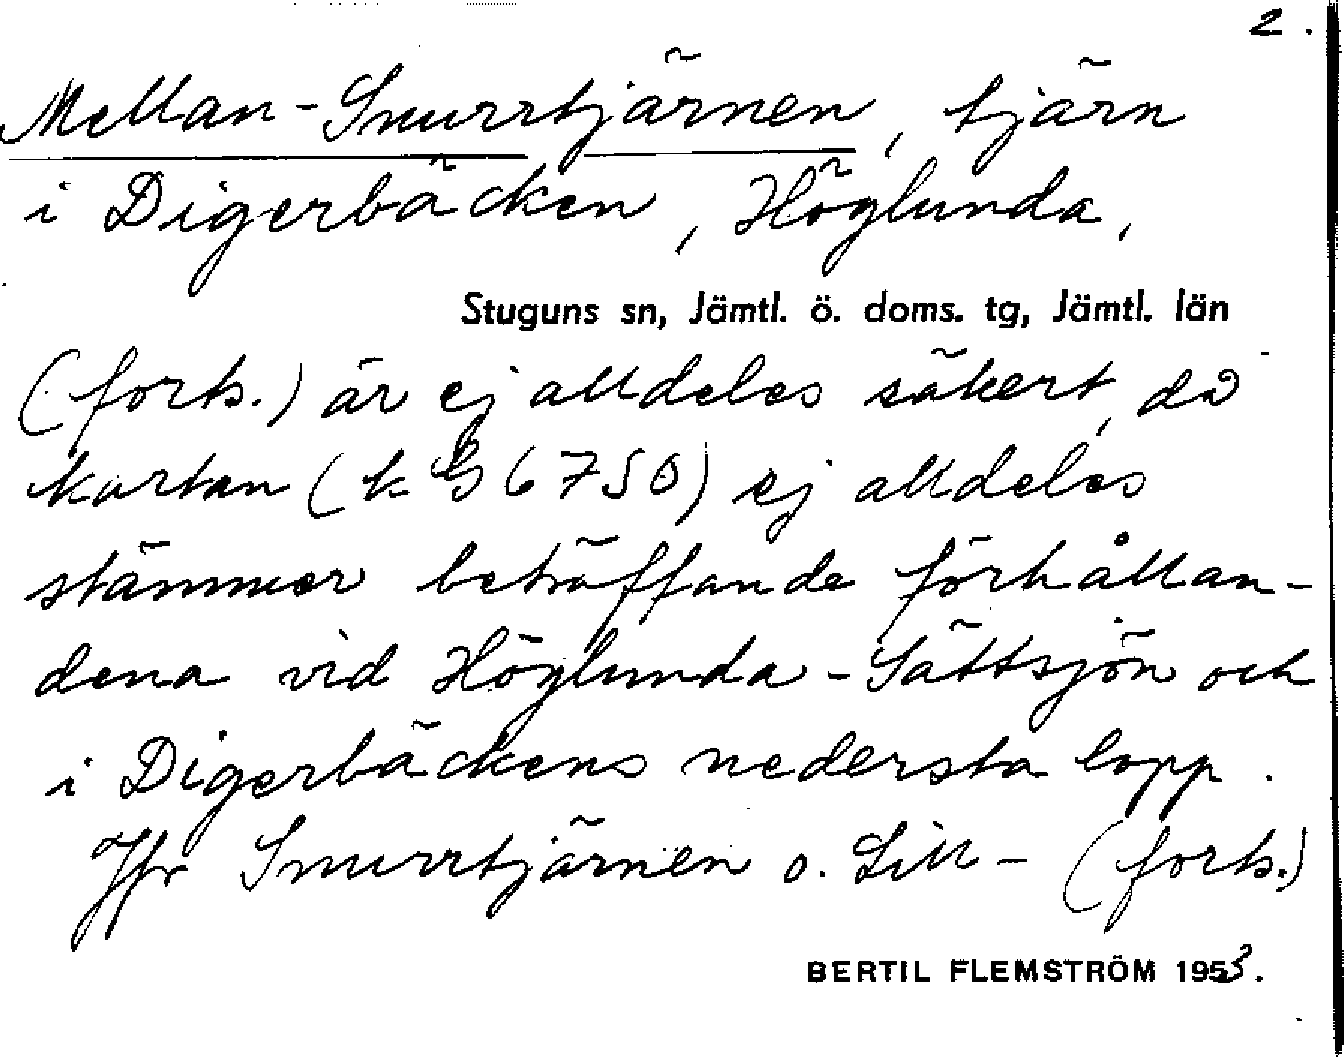 2.
Mellan-Snurrtjärnen, tjärn
i Digerbäcken, Höglunda,
Stuguns sn, Jämtl. ö. doms. tg, Jämtl. län
(forts.) är ej alldeles säkert, då
kartan (k G 6750) ej alldeles
stämmer beträffande förhållan-
dena vid Höglunda-Sättsjön och
i Digerbäckens nedersta lopp.
Jfr Snurrtjärnen o. Lill- (forts.)
BERTIL FLEMSTRÖM 1953.